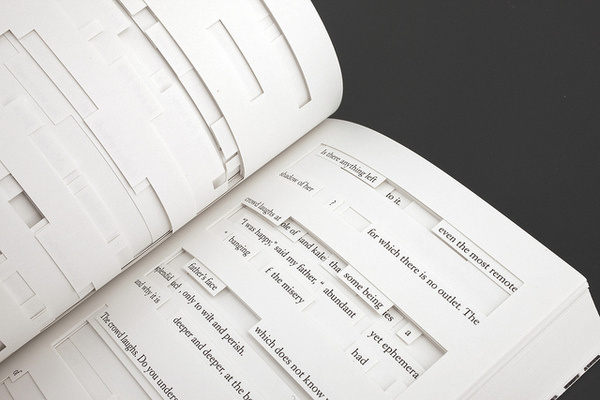 Is there anything left to it. even the most remote
shadow of her ? for which there is no outlet. The
crowd laughs at ple of and kale tha some being les a
"I was happy," said my father, " abundant yet ephemera
hanging f the misery had
father's face which does not know
splendid, only to wilt and perish.
and why it is deeper and deeper, at the bo
The crowd laughs. Do you unders